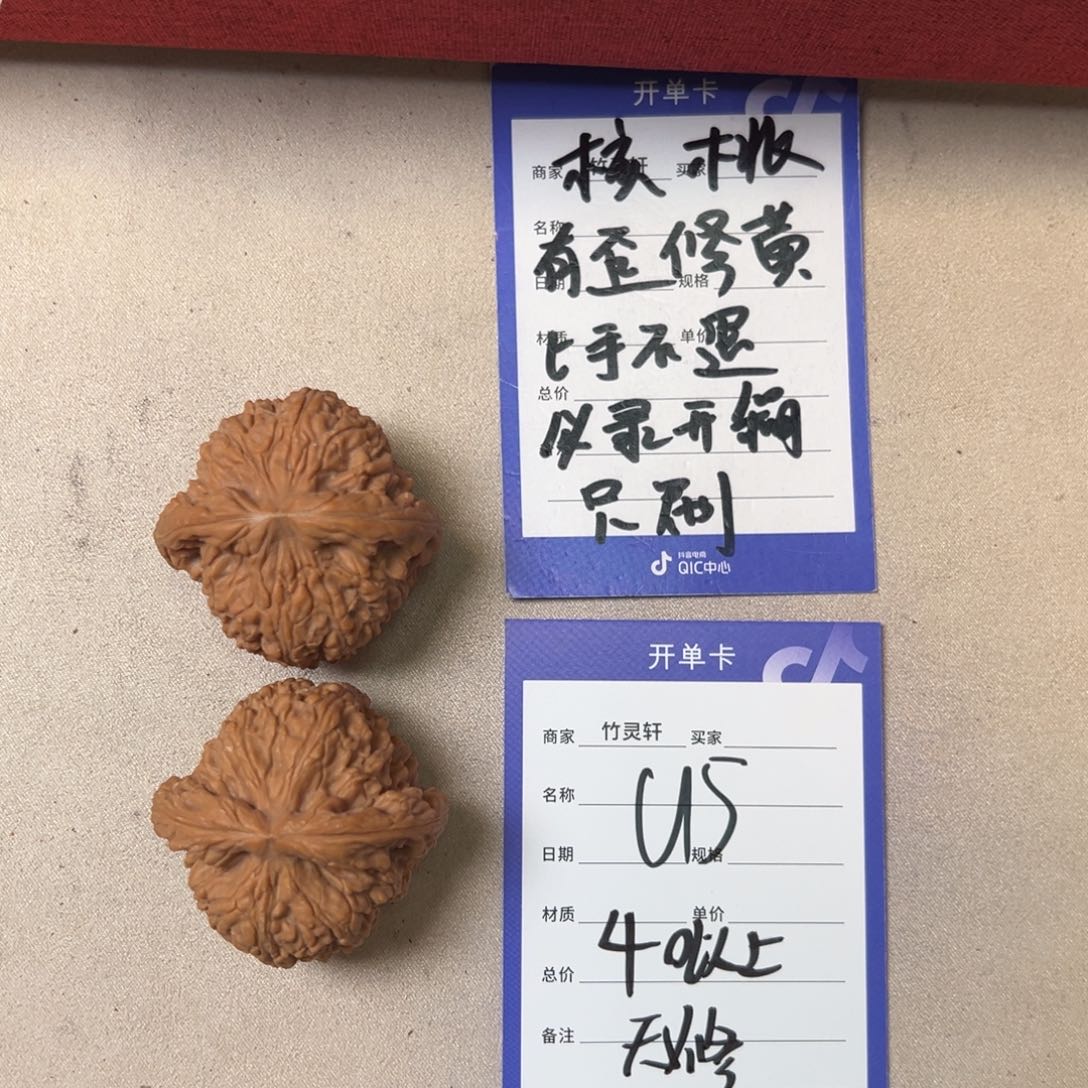 开单卡
商家 竹灵轩 买家
核桃
名称
有歪修黄
日期 规格
材质 单价
上手不退
总价
必录开箱
只刷
抖音电商
QIC中心
开单卡
商家 竹灵轩 买家
名称
U5
日期 规格
材质 单价
40以上
总价
备注